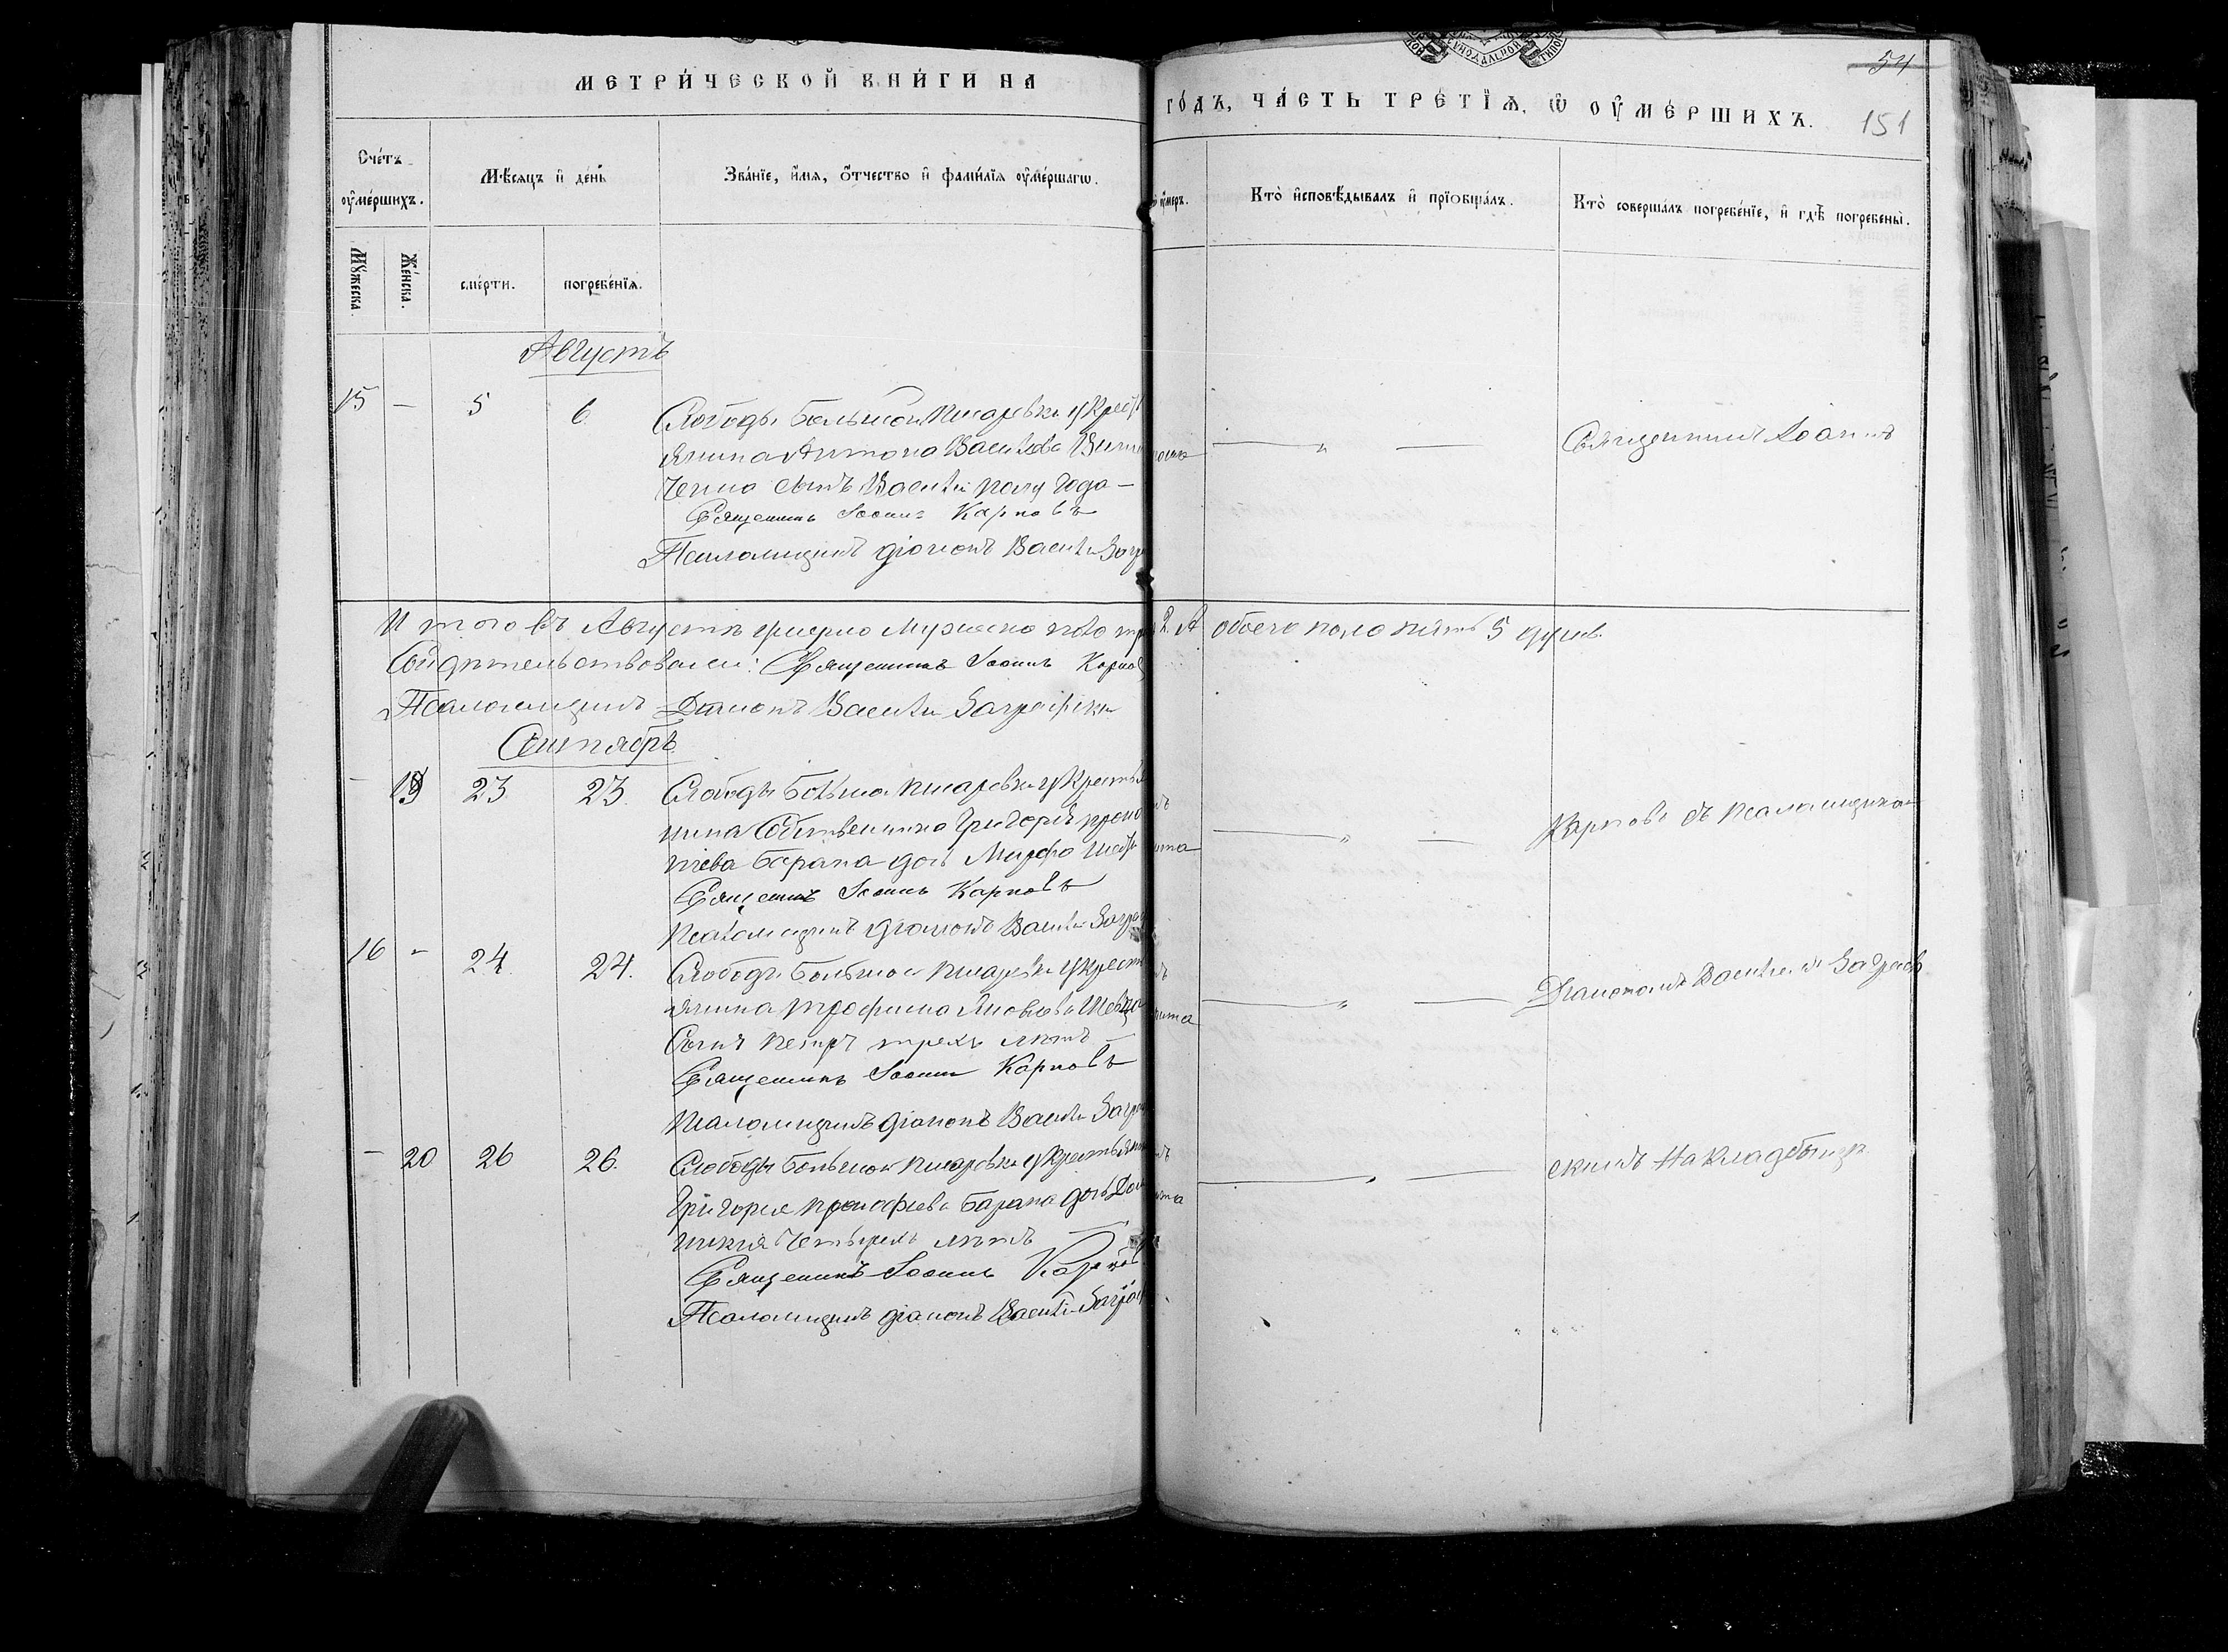 МЕТРИ́ЧЕСКОЙ КНИ́ГИ НА
ГО́ДЪ, ЧА́СТЬ ТРЕ́ТЇѦ, Ѡ ОУМЕ́РШИХЪ.
54
151
Сче́тъ оумершихъ.
Мѣсяцъ и день
Зва́нїе, и́мя, о́тчество и фами́лїя оуме́ршагѡ.
оумеръ.
Кто̀ исповѣ́дывалъ и прїобща́лъ.
Кто̀ соверша́лъ погребе́нїе, и гдѣ̀ погребены̀.
Мꙋ́жеска.
Же́нска.
сме́рти.
погребе́нїя.
Августъ
15 — 5 6
Слободы Большой Писаревки у Крест
янина Антона Васильева
сынъ Василій полу года —
Священникъ Іоаннъ Карповъ
Псаломщикъ діаконъ Василій
Священникъ Іоаннъ
Итого въ Августѣ умерло Мужеска пола обоего пола пять 5 душъ.
Свидѣтельствовали: Священникъ Іоаннъ Карпов
Псаломщикъ Діаконъ Василій Заграфскій
Сентябрь
— 19 23 23.
Слободы Больша Писаревки у Крестья
нина Собственника Григорія Проко
піева Барана дочь Марфа
Священникъ Іоаннъ Карповъ
Псаломщикъ діаконъ Василій
Карповъ съ псаломщикомъ
16 - 24. 24.
Слободы Большой Писаревки у крест
янина Трофима Яковлева
Сынъ Петръ трехъ лѣтъ —
Священникъ Іоаннъ Карповъ
Псаломщикъ діаконъ Василій
Діакономъ Василіемъ Заграф
— 20 26 26.
Слободы Большой Писаревки у Крестьянин
Григорія Прокофьева Барана дочь Дом
никія Четырехъ лѣтъ
Священникъ Іоаннъ Карпов
Псаломщикъ діаконъ Василій
скимъ На кладбищѣ